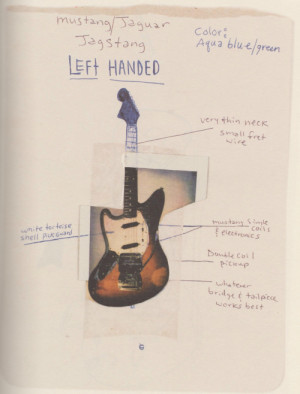 mustang/Jaguar
Jagstang
Color:
Aqua blue/green
LEFT HANDED
very thin neck
small fret
wire
white tortoise
shell pickguard
mustang single
coils
& electronics
Double coil
pickup
whatever
bridge & tailpiece
works best
6